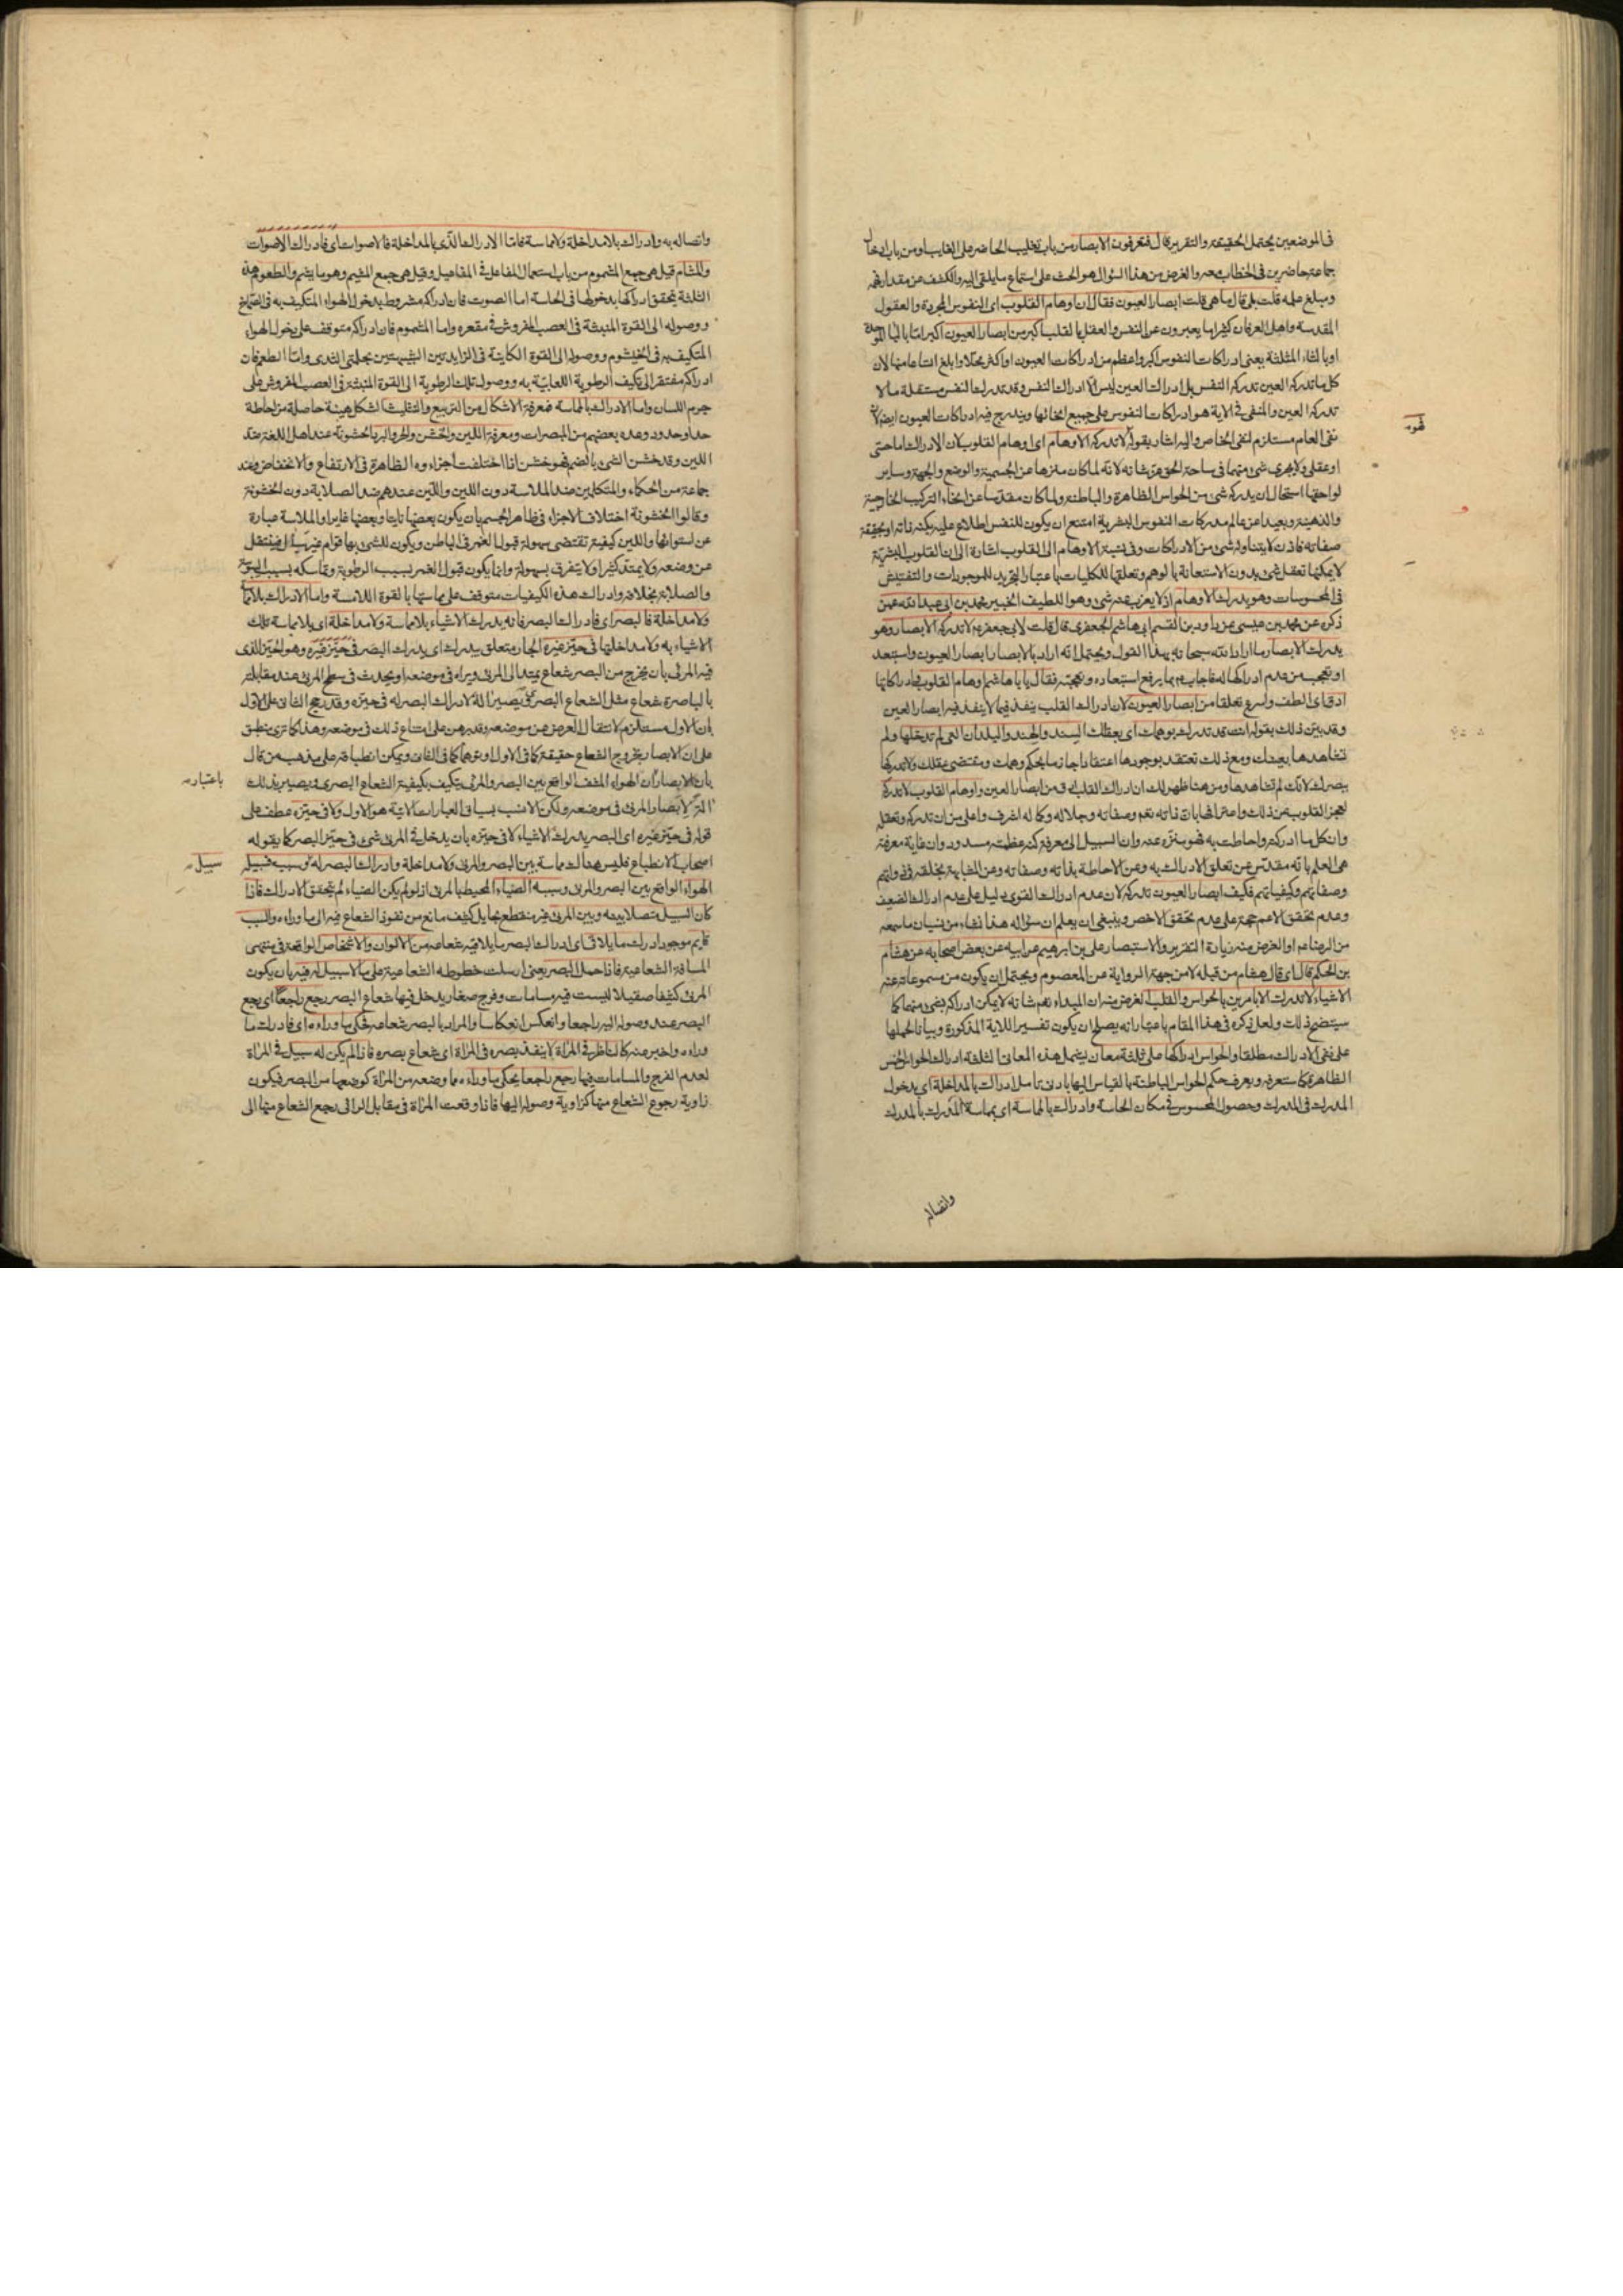 في الموضعين يحتمل الحقيقة والتقرير قال فتعرفون الابصار من باب تغليب الحاضر على الغايب او من باب ادخال
جماعة حاضرين في الخطاب معه والغرض من هذا السؤال هو الحث على استماع ما يلقى اليه والكشف عن مقدار فهمه
ومبلغ علمه قلت بلى قال ما هي قلت ابصار العيون فقال ان اوهام القلوب اى النفوس المجردة والعقول
المقدسة واهل العرفان كثيرا ما يعبرون عن النفس والعقل بالقلب اكبر من ابصار العيون اكبر اما بالباء الموحدة
او بالثاء المثلثة يعنى ادراكات النفوس اكبر واعظم من ادراكات العيون او اكثر محلا وابلغ اتساعا منها لان
كل ما تدركه العين تدركه النفس بل ادراك العين ليس الا ادراك النفس وقد تدرك النفس مستقلة ما لا
تدركه العين والمنفى في الآية هو ادراكات النفوس على جميع انحائها ويندرج فيه ادراكات العيون ايضا لان
نفى العام مستلزم لنفى الخاص واليه اشار بقوله لا تدركه الاوهام اى اوهام القلوب لان الادراك اما حسى
او عقلى ولا يجرى شئ منهما في ساحة الحق عز شانه لانه لما كان منزها عن الجسمية والوضع والجهة وساير
لواحقها استحال ان يدركه شئ من الحواس الظاهرة والباطنة ولما كان مقدسا عن انحاء التركيب الخارجية
والذهنية وبعيدا عن عالم مدركات النفوس البشرية امتنع ان يكون للنفس اطلاع عليه بكنه ذاته او بحقيقة
صفاته فاذن لا يتناوله شئ من الادراكات وفي نسبة الاوهام الى القلوب اشارة الى ان القلوب البشرية
لا يمكنها تعقل شئ بدون الاستعانة بالوهم وتعلقها للكليات باعتبار التجريد للموجودات والتفتيش
في المحسوسات وهو يدرك الاوهام اذ لا يعزب عنه شئ وهو اللطيف الخبير محمد بن ابي عبد الله عمن
ذكره عن محمد بن عيسى عن داود بن القسم ابى هاشم الجعفرى قال قلت لابي جعفر ع لا تدركه الابصار وهو
يدرك الابصار ما اراد الله سبحانه بهذا القول ويحتمل انه اراد بالابصار ابصار العيون واستبعد
او تعجب من عدم ادراكها له فاجاب ع بما يرفع استبعاده وتعجبه فقال يا ابا هاشم اوهام القلوب وادراكاتها
ادق اى الطف واسرع تعلقا من ابصار العيون لان ادراك القلب ينفذ فيما لا ينفذ فيه ابصار العين
وقد بين ذلك بقوله انت قد تدرك بوهمك اى بعقلك السند والهند والبلدان التي لم تدخلها ولم
تشاهدها بعينك ومع ذلك تعتقد بوجودها اعتقادا جازما بحكم وهمك ومقتضى عقلك ولا تدركها
ببصرك لانك لم تشاهدها ومن هنا ظهر لك ان ادراك القلب ادق من ابصار العين واوهام القلوب لا تدركه
لعجز القلوب عن ذلك واعترافها بان ذاته نعم وصفاته وجلاله وكماله اشرف واعلى من ان تدركه وتعقله
وان كل ما ادركته واحاطت به فهو منزه عنه وان السبيل الى معرفة كنه عظمته مسدود وان غاية معرفته
هى العلم بانه مقدس عن تعلق الادراك به وعن الاحاطة بذاته وصفاته وعن المشابهة بخلقه في ذواتهم
وصفاتهم وكيفياتهم فكيف ابصار العيون تدركه لان عدم ادراك القوى دليل على عدم ادراك الضعيف
وعدم تحقق الاعم حجة على عدم تحقق الاخص وينبغى ان يعلم ان سؤاله هذا نشاء من نسيان ما سمعه
من الرضا ع او الغرض منه زيادة التقرير والاستبصار على بن ابرهيم عن ابيه عن بعض اصحابه عن هشام
بن الحكم قال اى قال هشام من قبله لا من جهة الرواية عن المعصوم ويحتمل ان يكون من مسموعاته عنه
الاشياء لا تدرك الا بامرين بالحواس والقلب الغرض منه ان المبداء نعم شانه لا يمكن ادراكه بشئ منهما كما
سيتضح ذلك ولعل ذكره في هذا المقام باعتبار انه يصلح ان يكون تفسيرا للاية المذكورة وبيانا لحملها
على نفى الادراك مطلقا والحواس ادراكها على ثلثة معان يشمل هذه المعاني الثلثة ادراك الحواس الخمس
الظاهرة كما ستعرفه ويعرف حكم الحواس الباطنة بالقياس اليها بادنى تامل ادراك بالمداخلة اى بدخول
المدرك في المدرك وحصول المحسوس في مكان الحاسة وادراك بالمماسة اى بمماسة المدرك بالمدرك
واتصاله
واتصاله به وادراك بلا مداخلة ولا مماسة فاما الادراك الذى بالمداخلة فالاصوات اى فادراك الاصوات
والمشام قيل هى جمع المشموم من باب استعمال المفاعل في المفاعيل وقيل هى جمع المشيم وهو ما يشم والطعوم هذه
الثلثة يتحقق ادراكها بدخولها في الحاسة اما الصوت فان ادراكه مشروط بدخول الهواء المتكيف به في الصماخ
ووصوله الى القوة المنبثة في العصب المفروش في مقعره واما المشموم فان ادراكه متوقف على دخول الهواء
المتكيف به في الخيشوم ووصوله الى القوة الكاينة في الزايدتين الشبيهتين بحلمتى الثدى واما الطعم فان
ادراكه مفتقر الى تكيف الرطوبة اللعابية به ووصول تلك الرطوبة الى القوة المنبثة في العصب المفروش على
جرم اللسان واما الادراك بالمماسة فمعرفة الاشكال من التربيع والتثليث الشكل هيئة حاصلة من احاطة
حد او حدود وعده بعضهم من المبصرات ومعرفة اللين والخشن والحر والبرد الخشونة عند اهل اللغة ضد
اللين وقد خشن الشئ بالضم فهو خشن اذا اختلفت اجزاءه الظاهرة في الارتفاع والانخفاض وعند
جماعة من الحكماء والمتكلمين ضد الملاسة دون اللين واللين عندهم ضد الصلابة دون الخشونة
وقالوا الخشونة اختلاف الاجزاء في ظاهر الجسم بان يكون بعضها ناتيا وبعضها غايرا والملاسة عبارة
عن استوائها واللين كيفية تقتضى سهولة قبول الغمز في الباطن ويكون للشئ بها قوام غير سيال فينتقل
عن وضعه ولا يمتد كثيرا ولا يتفرق بسهولة وانما يكون قبول الغمز بسبب الرطوبة وتماسكه بسبب اليبوسة
والصلابة بخلافه وادراك هذه الكيفيات متوقف على مماستها بالقوة اللامسة واما الادراك بلا مماسة
ولا مداخلة فالبصر اى فادراك البصر فانه يدرك الاشياء بلا مماسة ولا مداخلة اى بلا مماسة تلك
الاشياء به ولا مداخلتها في حيز غيره الجار متعلق بيدرك اى يدرك البصر في حيز غيره وهو الحيز الذى
فيه المرئى بان يخرج من البصر شعاع يمتد الى المرئى ويراه في موضعه او يحدث في سطح المرئى عند مقابلته
بالباصرة شعاع مثل الشعاع البصرى يصير آلة لادراك البصر له في حيزه وقد رجح الثانى على الاول
بان الاول مستلزم لانتقال العرض عن موضعه وقد برهن على امتناع ذلك في موضعه وهذا كما ترى ينطبق
على ان الابصار بخروج الشعاع حقيقة كما في الاول او توهما كما في الثانى ويمكن انطباقه على مذهب من قال
بان الابصار ان الهواء المشف الواقع بين البصر والمرئى يتكيف بكيفية الشعاع البصرى ويصير بذلك
آلة لابصار المرئى في موضعه ولكن الانسب بسياق العبارات الاتية هو الاول ولا في حيزه عطف على
قوله في حيز غيره اى البصر يدرك الاشياء لا في حيزه بان يدخل في المرئى شئ في حيز البصر كما يقوله
اصحاب الانطباع فليس هناك مماسة بين البصر والمرئى ولا مداخلة وادراك البصر له سبيل وسبب فسبيله
الهواء الواقع بين البصر والمرئى وسببه الضياء المحيط بالمرئى اذ لو لم يكن الضياء لم يتحقق الادراك فاذا
كان السبيل متصلا بينه وبين المرئى غير منقطع بحايل كثيف مانع من نفوذ الشعاع فيه الى ما وراءه والسبب
قايم موجود ادرك ما يلاقى اى ادراك البصر ما يلاقيه شعاعه من الالوان والاشخاص الواقعة في منتهى
المسافة الشعاعية فاذا حمل البصر يعنى ارسلت خطوطه الشعاعية على ما لا سبيل له فيه بان يكون
المرئى كثيفا صقيلا ليست فيه مسامات وفرج صغار يدخل فيها شعاع البصر رجع راجعا اى رجع
البصر عند وصوله اليه راجعا وانعكس انعكاسا والمراد بالبصر شعاعه فحكى ما وراءه اى فادرك ما
وراءه واخبر عنه كالناظر في المرآة لا ينفذ بصره في المرآة اى شعاع بصره فاذا لم يكن له سبيل في المرآة
لعدم الفرج والمسامات فيها رجع راجعا يحكى ما وراءه مما وضعه من المرآة كوضعها من البصر فيكون
زاوية رجوع الشعاع منها كزاوية وصوله اليها فاذا وقعت المرآة في مقابل الرائى رجع الشعاع منها الى
باعتبار
سبيل